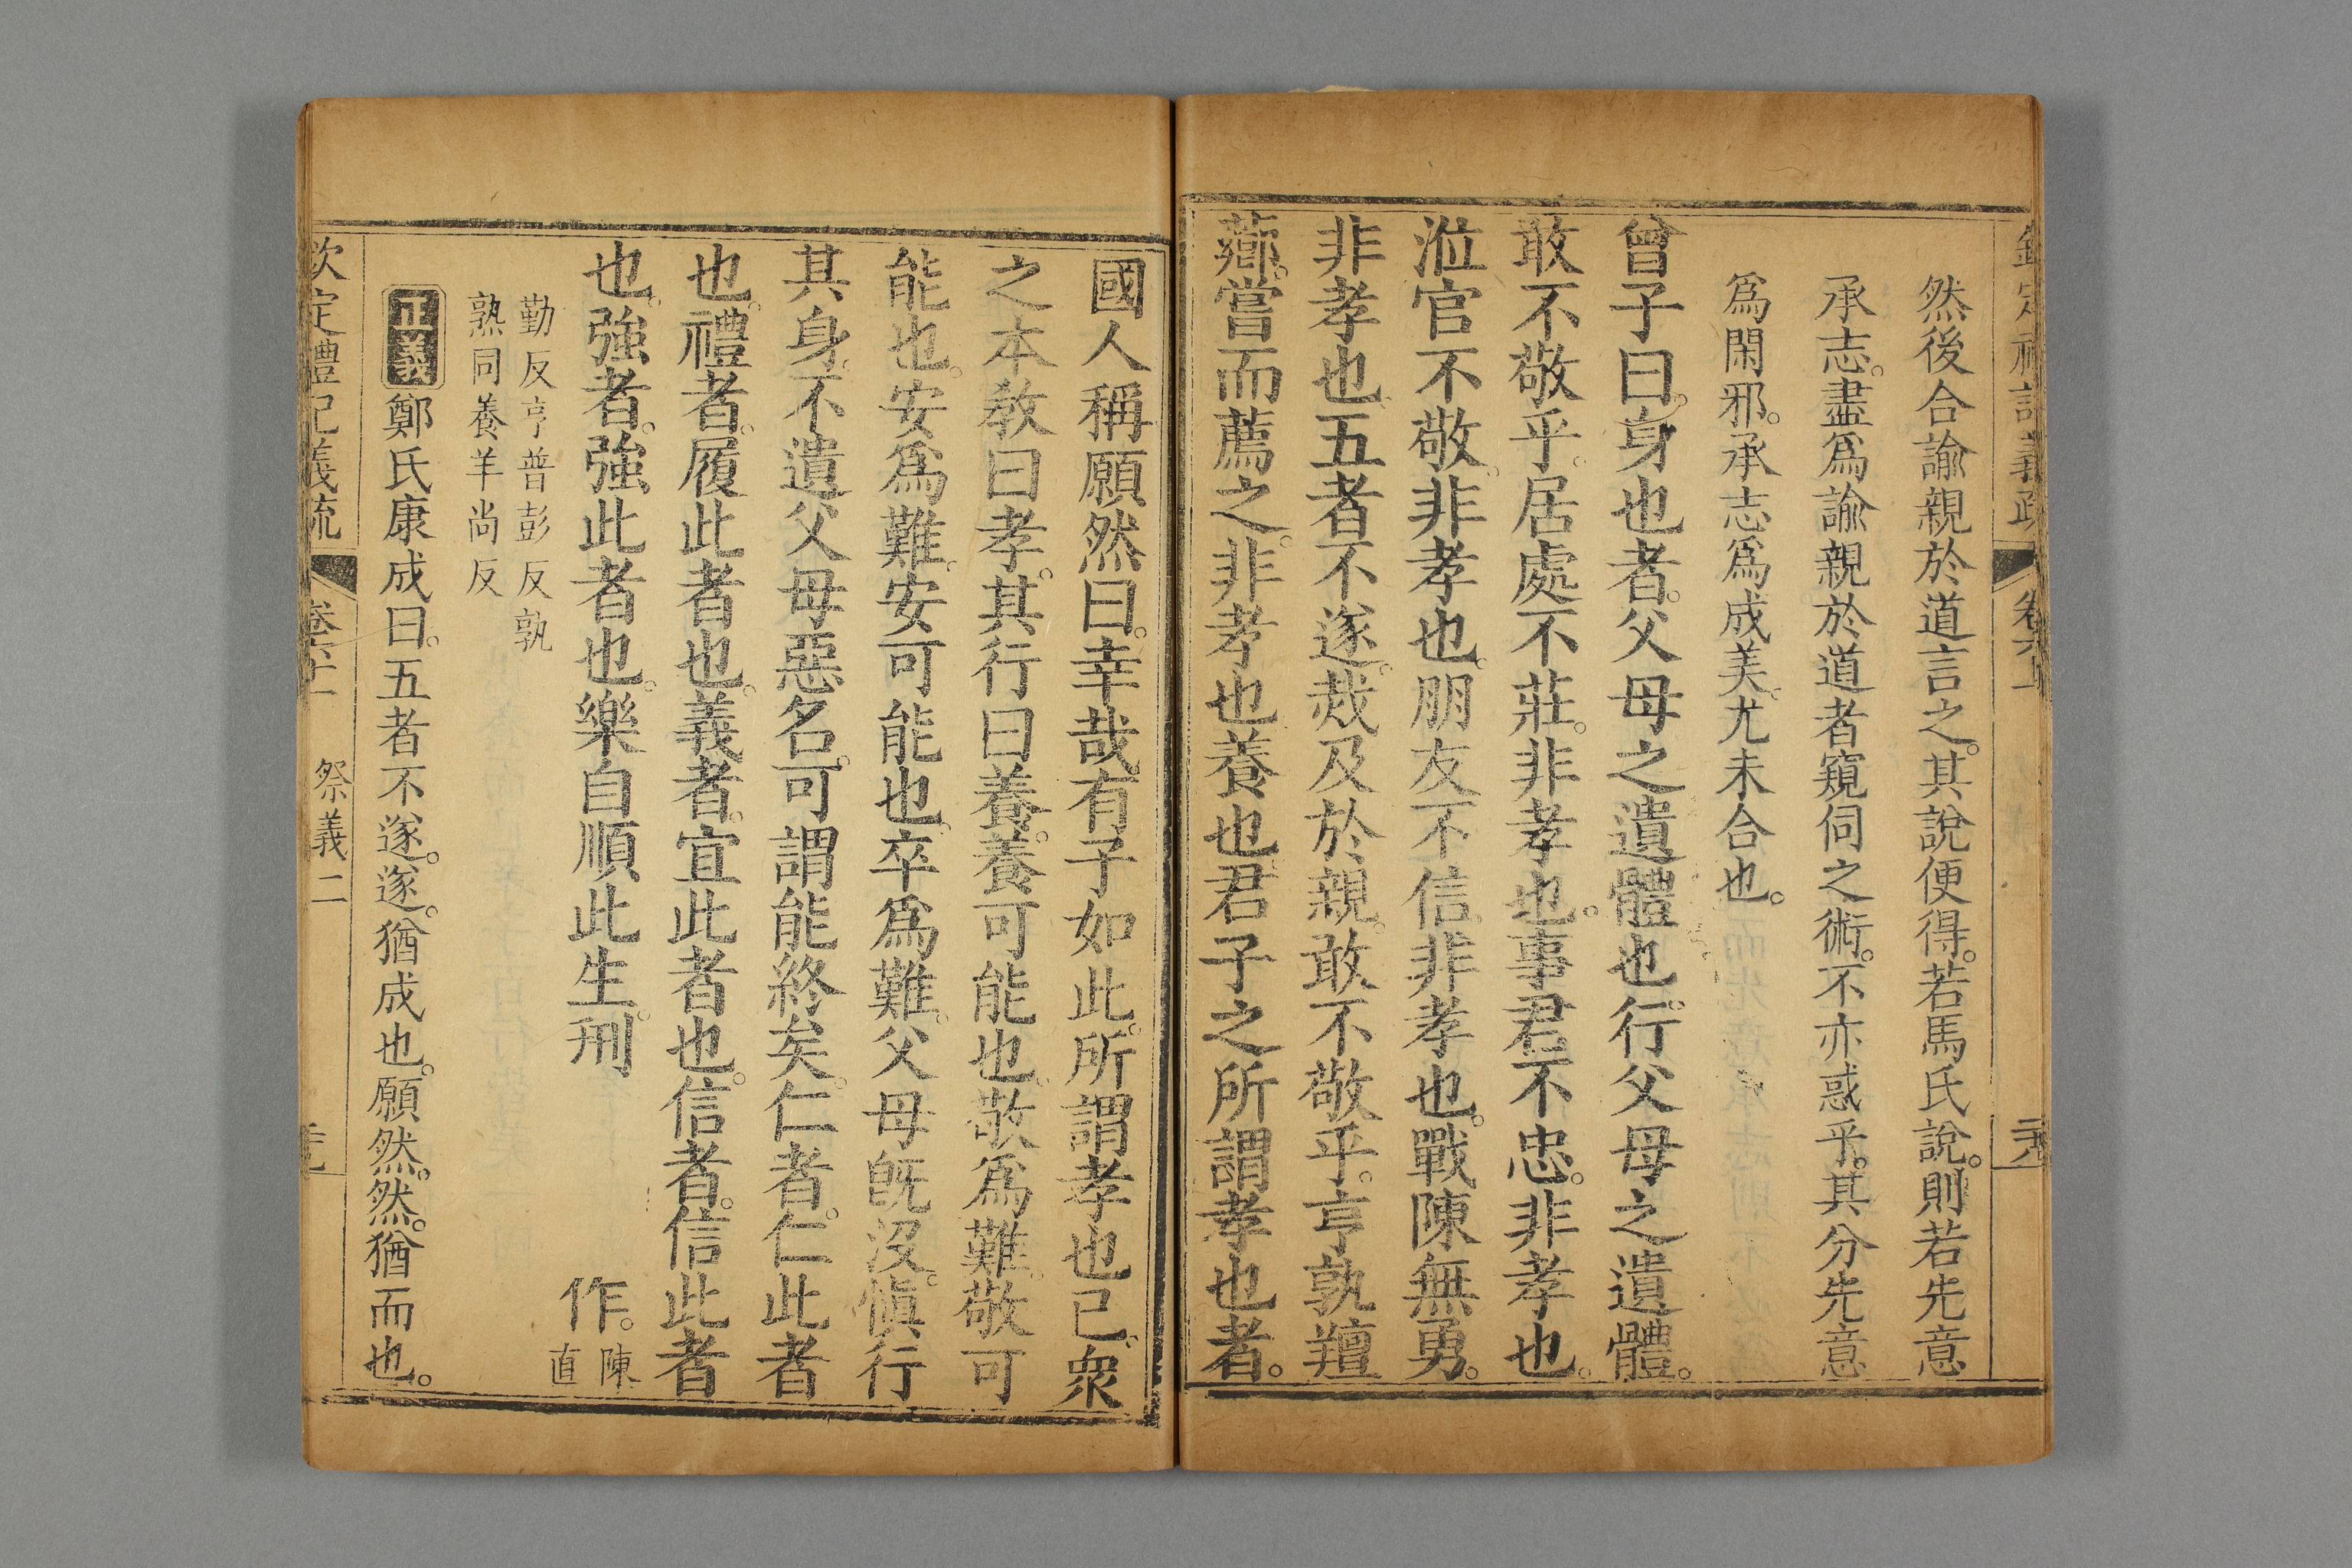 然後合諭親於道言之。其說便得。若馬氏說。則若先意
承志。盡爲諭親於道者窺伺之術。不亦惑乎。其分先意
爲閑邪。承志爲成美。尤未合也。
曾子曰。身也者。父母之遺體也。行父母之遺體。
敢不敬乎。居處不莊。非孝也。事君不忠。非孝也。
涖官不敬。非孝也。朋友不信。非孝也。戰陳無勇。
非孝也。五者不遂。烖及於親。敢不敬乎。亨孰羶
薌。嘗而薦之。非孝也。養也。君子之所謂孝也者。
國人稱願然曰。幸哉有子如此。所謂孝也已。衆
之本敎曰孝。其行曰養。養可能也。敬爲難。敬可
能也。安爲難。安可能也。卒爲難。父母旣沒。愼行
其身。不遺父母惡名。可謂能終矣。仁者。仁此者
也。禮者。履此者也。義者。宜此者也。信者。信此者
也。強者。強此者也。樂自順此生。刑
作。陳
直
勤反亨普彭反孰
熟同養羊尚反
正義鄭氏康成曰。五者不遂。遂。猶成也。願然。然。猶而也。
欽定禮記義疏
祭義二